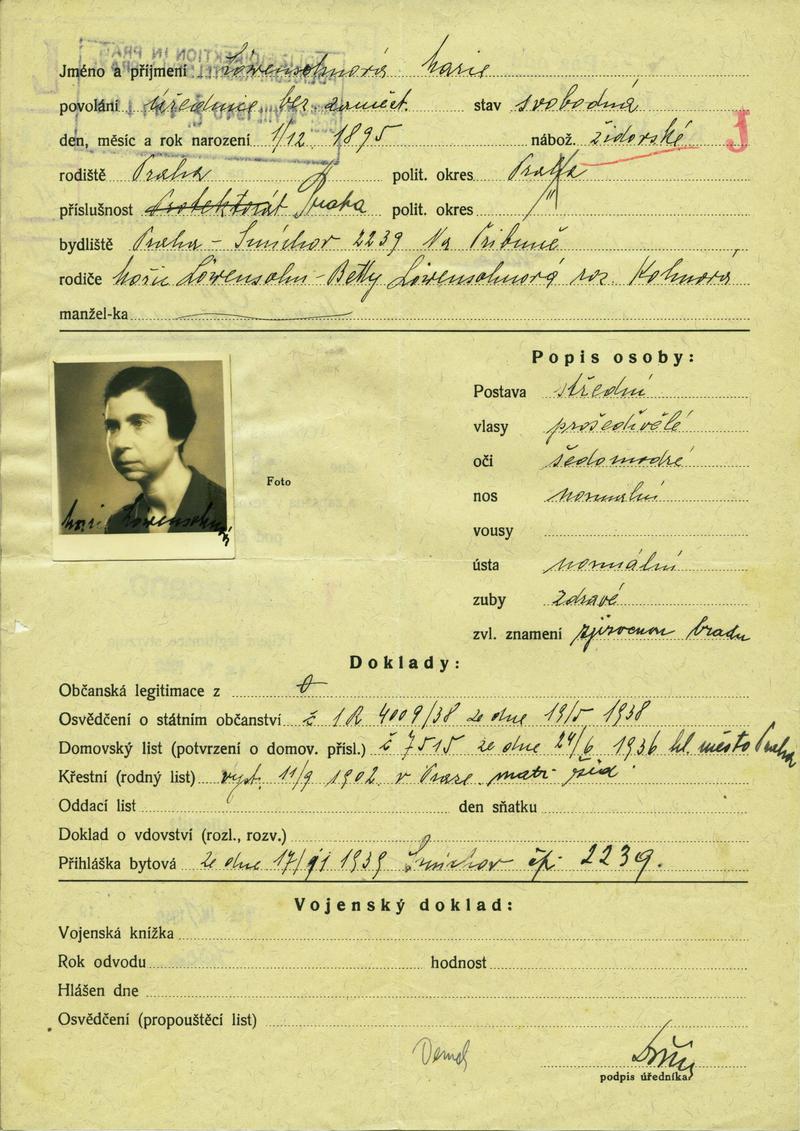 Jméno a příjmení Löwensohnová Marie
povolání úřednice bez zaměst. stav svobodná
den, měsíc a rok narození 1/12 1895 nábož. židovské J
rodiště Praha polit. okres Praha
příslušnost Protektorát Praha polit. okres "
bydliště Praha - Smíchov 2239 Na Přibině
rodiče Löwensohn - Betty Löwensohnová roz. Kohnová
manžel-ka
Popis osoby:
Postava střední
vlasy prošedivělé
oči šedomodré
Foto
nos normální
vousy
ústa normální
zuby zdravé
zvl. znamení bradu
Marie Löwensohnová
Doklady:
Občanská legitimace z 0
Osvědčení o státním občanství č 1R 4009/38 ze dne 19/5 1938
Domovský list (potvrzení o domov. přísl.) č 7515 ze dne 24/6 1936 hl. město Praha
Křestní (rodný list) vyst. 11/9 1902 v Praze matr žid
Oddací list den sňatku
Doklad o vdovství (rozl., rozv.)
Přihláška bytová ze dne 1939 Smíchov čp. 2239.
Vojenský doklad:
Vojenská knížka
Rok odvodu hodnost
Hlášen dne
Osvědčení (propouštěcí list)
podpis úředníka